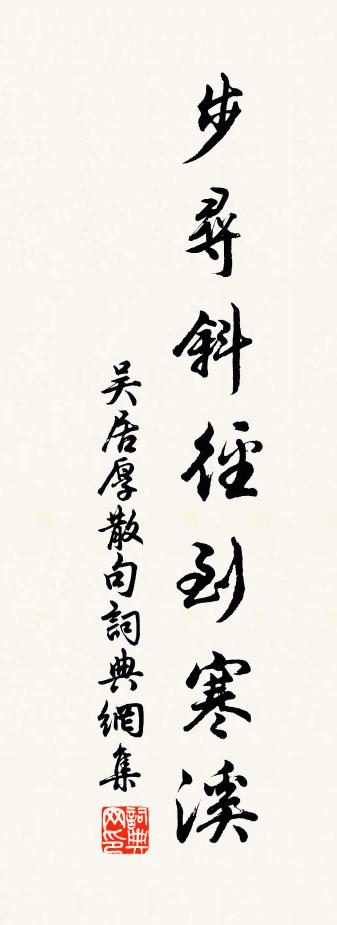 步尋斜徑到寒溪
吳居厚散句詞典網集
詞典網印